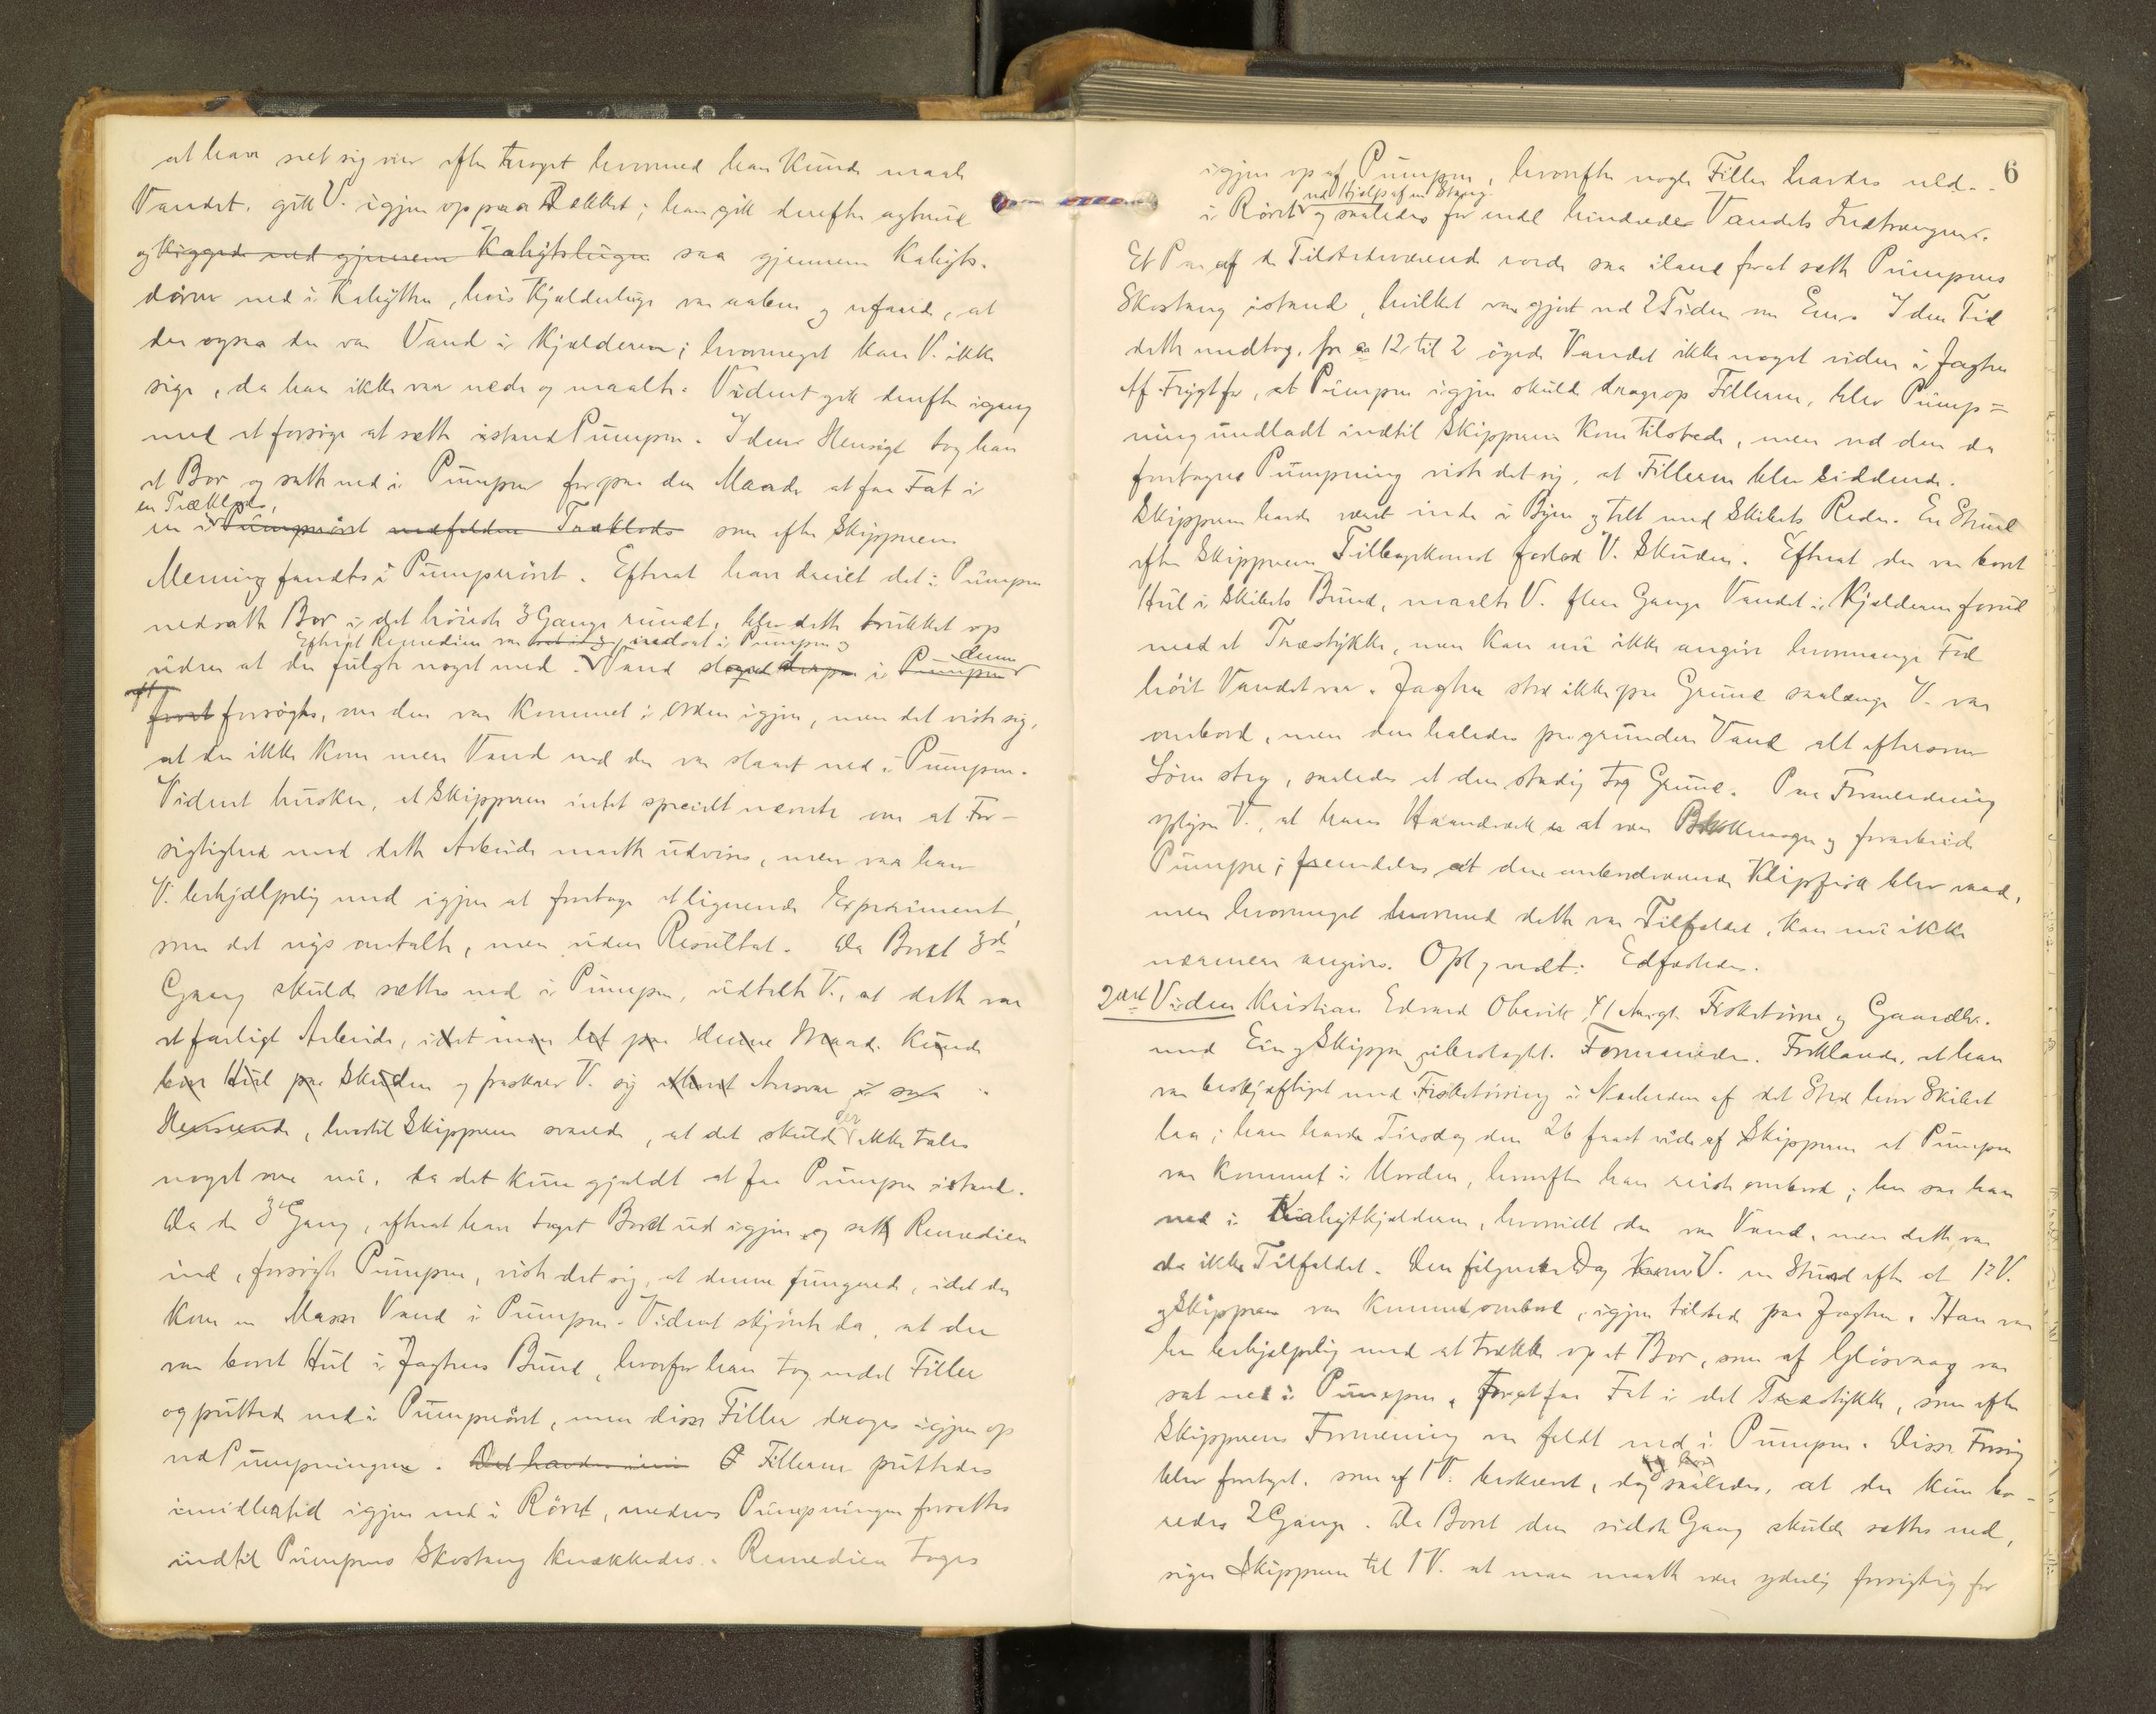 at have set sig om efter Noget hvormed han kunde maale
Vandet. gik V. igjen op paa Dækket; han gik derefter agterud
og kiggede ned gjennem Kahytslugen saa gjennem Kahyts-
døren ned i Kahytten, hvis Kjælderluge var aaben og erfarede, at
der ogsaa der var Vand i Kjælderen; hvormeget kan V. ikke
sige, da han ikke var nede og maalte. Vidnet gik derefter igang
med at forsøge at sætte istand Pumpen. I den Hensigt tog han
et Bor og satte ned i Pumpen for paa den Maade at faa Fat i
en Træklods,
en i Pumperøret nedfalden Træklods som efter Skipperens
Mening fandtes i Pumperøret. Efterat have dreiet det i Pumpen
nedsatte Bor i det høieste 3 Gange rundt, blev dette trukket op
Efterat Remedien var nedsat i Pumpen og
uden at der fulgte noget med. Vand sloges derpaa i Pumpen denne
forat forsøges, om den var kommet i Orden igjen, men det viste sig,
at der ikke kom mere Vand end der var slaaet ned i Pumpen.
Vidnet husker, at Skipperen intet specielt nævnte om at For-
sigtighed med dette Arbeide maatte udvises, men var han
V. behjælpelig med igjen at foretage et lignende Experiment,
som det nys omtalte, men uden Resultat. Da Boret 3die
Gang skulde sættes ned i Pumpen, udtalte V., at dette var
et farligt Arbeide, idet man let paa denne Maade kunde
bore Hul paa Skuden og fraskrev V. sig ethvert Ansvar i saa
Henseende, hvortil Skipperen svarede, at det skulde der ikke tales
noget om nu, da det kun gjaldt at faa Pumpen istand.
Da de 3die Gang, efterat have taget Boret ud igjen og satte Remedien
ind, forsøgte Pumpen, viste det sig, at denne fungerede, idet der
kom en Masse Vand i Pumpen. Vidnet skjønte da, at der
var boret Hul i Jagtens Bund, hvorfor han tog endel Filler
og puttede ned i Pumperøret, men disse Filler droges igjen op
ved Pumpningen. Det havde Fillerne puttedes
imidlertid igjen ned i Røret, medens Pumpningen fortsattes
indtil Pumpens Skostang knækkedes. Remedien toges
6
igjen op af Pumpen, hvorefter nogle Filler havdes ned
ved Hjælp af en Stang
i Røret og saaledes for endel hindredes Vandets Indtrængen.
Et Par af de Tilstedeværende roede saa iland forat sætte Pumpens
Skostang istand, hvilket var gjort ved 2 Tiden om Em. I den Tid
dette medtog, fra ca 12 til 2 øgede Vandet ikke noget videre i Jagten
Af Frygt for, at Pumpen igjen skulde drage op Fillerne, blev Pump=
ning undladt indtil Skipperen kom tilstede, men ved den da
foretagne Pumpning viste det sig, at Fillerne blev siddende.
Skipperen havde været inde i Byen og talt med Skibets Reder. En Stund
efter Skipperens Tilbagekomst forlod V. Skuden. Efterat der var boret
Hul i Skibets Bund, maalte V. flere Gange Vandet i Kjælderen forud
med et Træstykke, men kan nu ikke angive hvormange Fod
høit Vandet var. Jagten stod ikke paa Grund saalænge V. var
ombord, men den haledes paa grundere Vand alt eftersom
Søen steg, saaledes at den stadig tog Grund. Paa Foranledning
oplyser V., at hans Haandværk er at være Blokkemager og forarbeide
Pumper; fremdeles at den ombordværende Klipfisk blev vaad,
men hvormeget hvormed dette var Tilfældet, kan nu ikke
nærmere angives. Opl. og vedt. Edfæstedes.
2det Vidne Kristian Edvard 41 Aar gl. Fisketørrer og Gaardbr.
med Eier og Skipper ubeslægtet. Formanedes. Forklarede, at han
var beskjæftiget med Fisketørring i Nærheden af det Sted hvor Skibet
laa; han havde Tirsdag den 26 faaet vide af Skipperen at Pumpen
var kommet i Uorden, hvorefter han reiste ombord; her saa han
ned i Kahytkjælderen, hvorvidt der var Vand, men dette var
da ikke Tilfældet. Den følgende Dag kom V. en Stund efter at 1ste V.
og Skipperen var kommet ombord, igjen tilstede paa Jagten. Han var
her behjælpelig med at trække op et Bor, som af Gløsvaag var
sat ned i Pumpen, forat faa Fat i det Træstykke, som efter
Skipperens Formening var faldt ned i Pumpen. Disse Forsøg
blev foretaget, som af 1 V. beskrevet, dog saaledes, at der kun bo-
redes 2 Gange. Da Boret den sidste Gang skulde sættes ned,
siger Skipperen til 1 V. at man maatte være yderlig forsigtig for